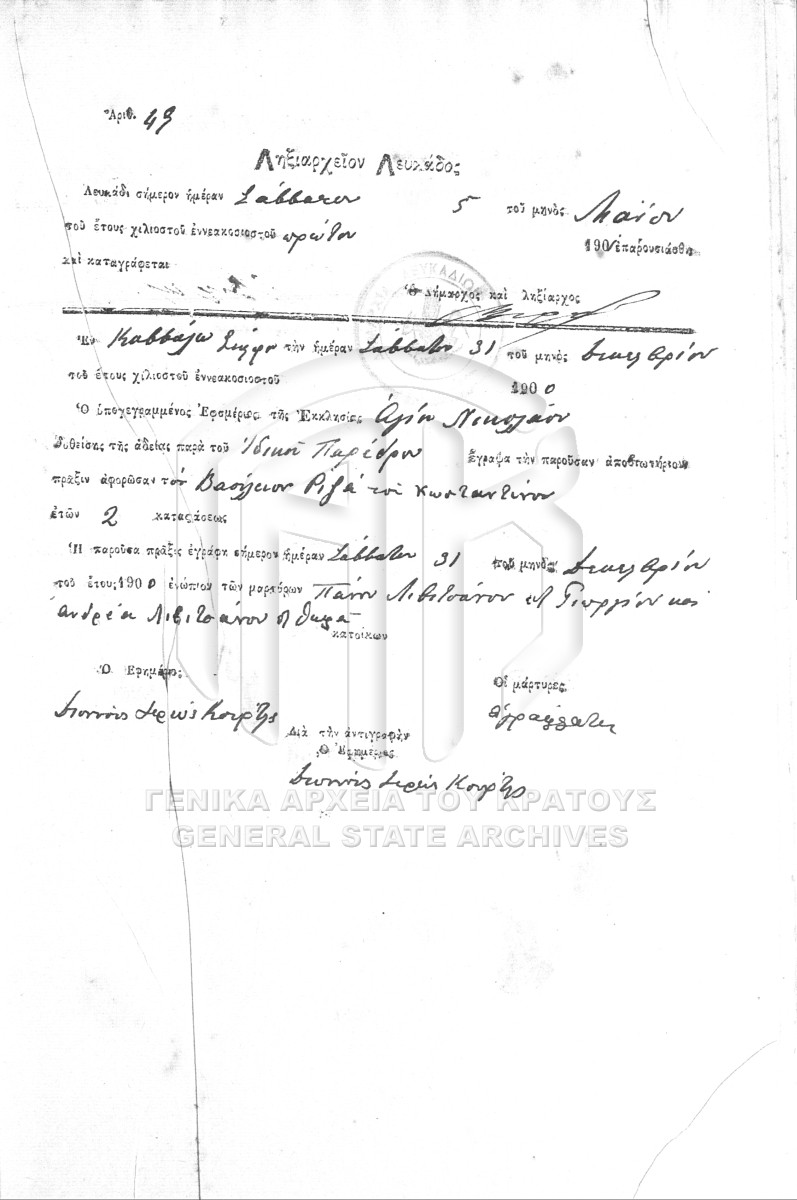 Ἀριθ. 49
Ληξιαρχεῖον Λευκάδος
Λευκάδι σήμερον ἡμέραν Σάββατον 5 τοῦ μηνὸς Μαΐου
τοῦ ἔτους χιλιοστοῦ ἐννεακοσιοστοῦ πρώτου 190 ἐπαρουσιάσθη
καὶ καταγράφεται
Ὁ Δήμαρχος καὶ ληξίαρχος
Ἐν Καββάλῳ τὴν ἡμέραν Σάββατον 31 τοῦ μηνὸς
τοῦ ἔτους χιλιοστοῦ ἐννεακοσιοστοῦ 1900
Ὁ ὑπογεγραμμένος Ἐφημέριος τῆς Ἐκκλησίας Ἁγίου Νικολάου
δοθείσης τῆς ἀδείας παρὰ τοῦ Ἰδικοῦ Παρέδρου ἔγραψα τὴν παροῦσαν ἀποβιωτήριον
πρᾶξιν ἀφορῶσαν τὸν Βασίλειον Ρίζα τοῦ Κωσταντίνου
ἐτῶν 2 καταστάσεως
Ἡ παροῦσα πρᾶξις ἐγράφη σήμερον ἡμέραν Σάββατον 31 τοῦ μηνὸς
τοῦ ἔτους 1900 ἐνώπιον τῶν μαρτύρων Πάνου Λιβιτσάνου Γιωργίου καὶ
Ἀνδρέα Λιβιτσάνου Θωμᾶ
κατοίκων
Ὁ Ἐφημέριος Οἱ μάρτυρες
ἀγράμματοι
Διὰ τὴν ἀντιγραφὴν
Ὁ Ἐφημέριος
ΓΕΝΙΚΑ ΑΡΧΕΙΑ ΤΟΥ ΚΡΑΤΟΥΣ
GENERAL STATE ARCHIVES